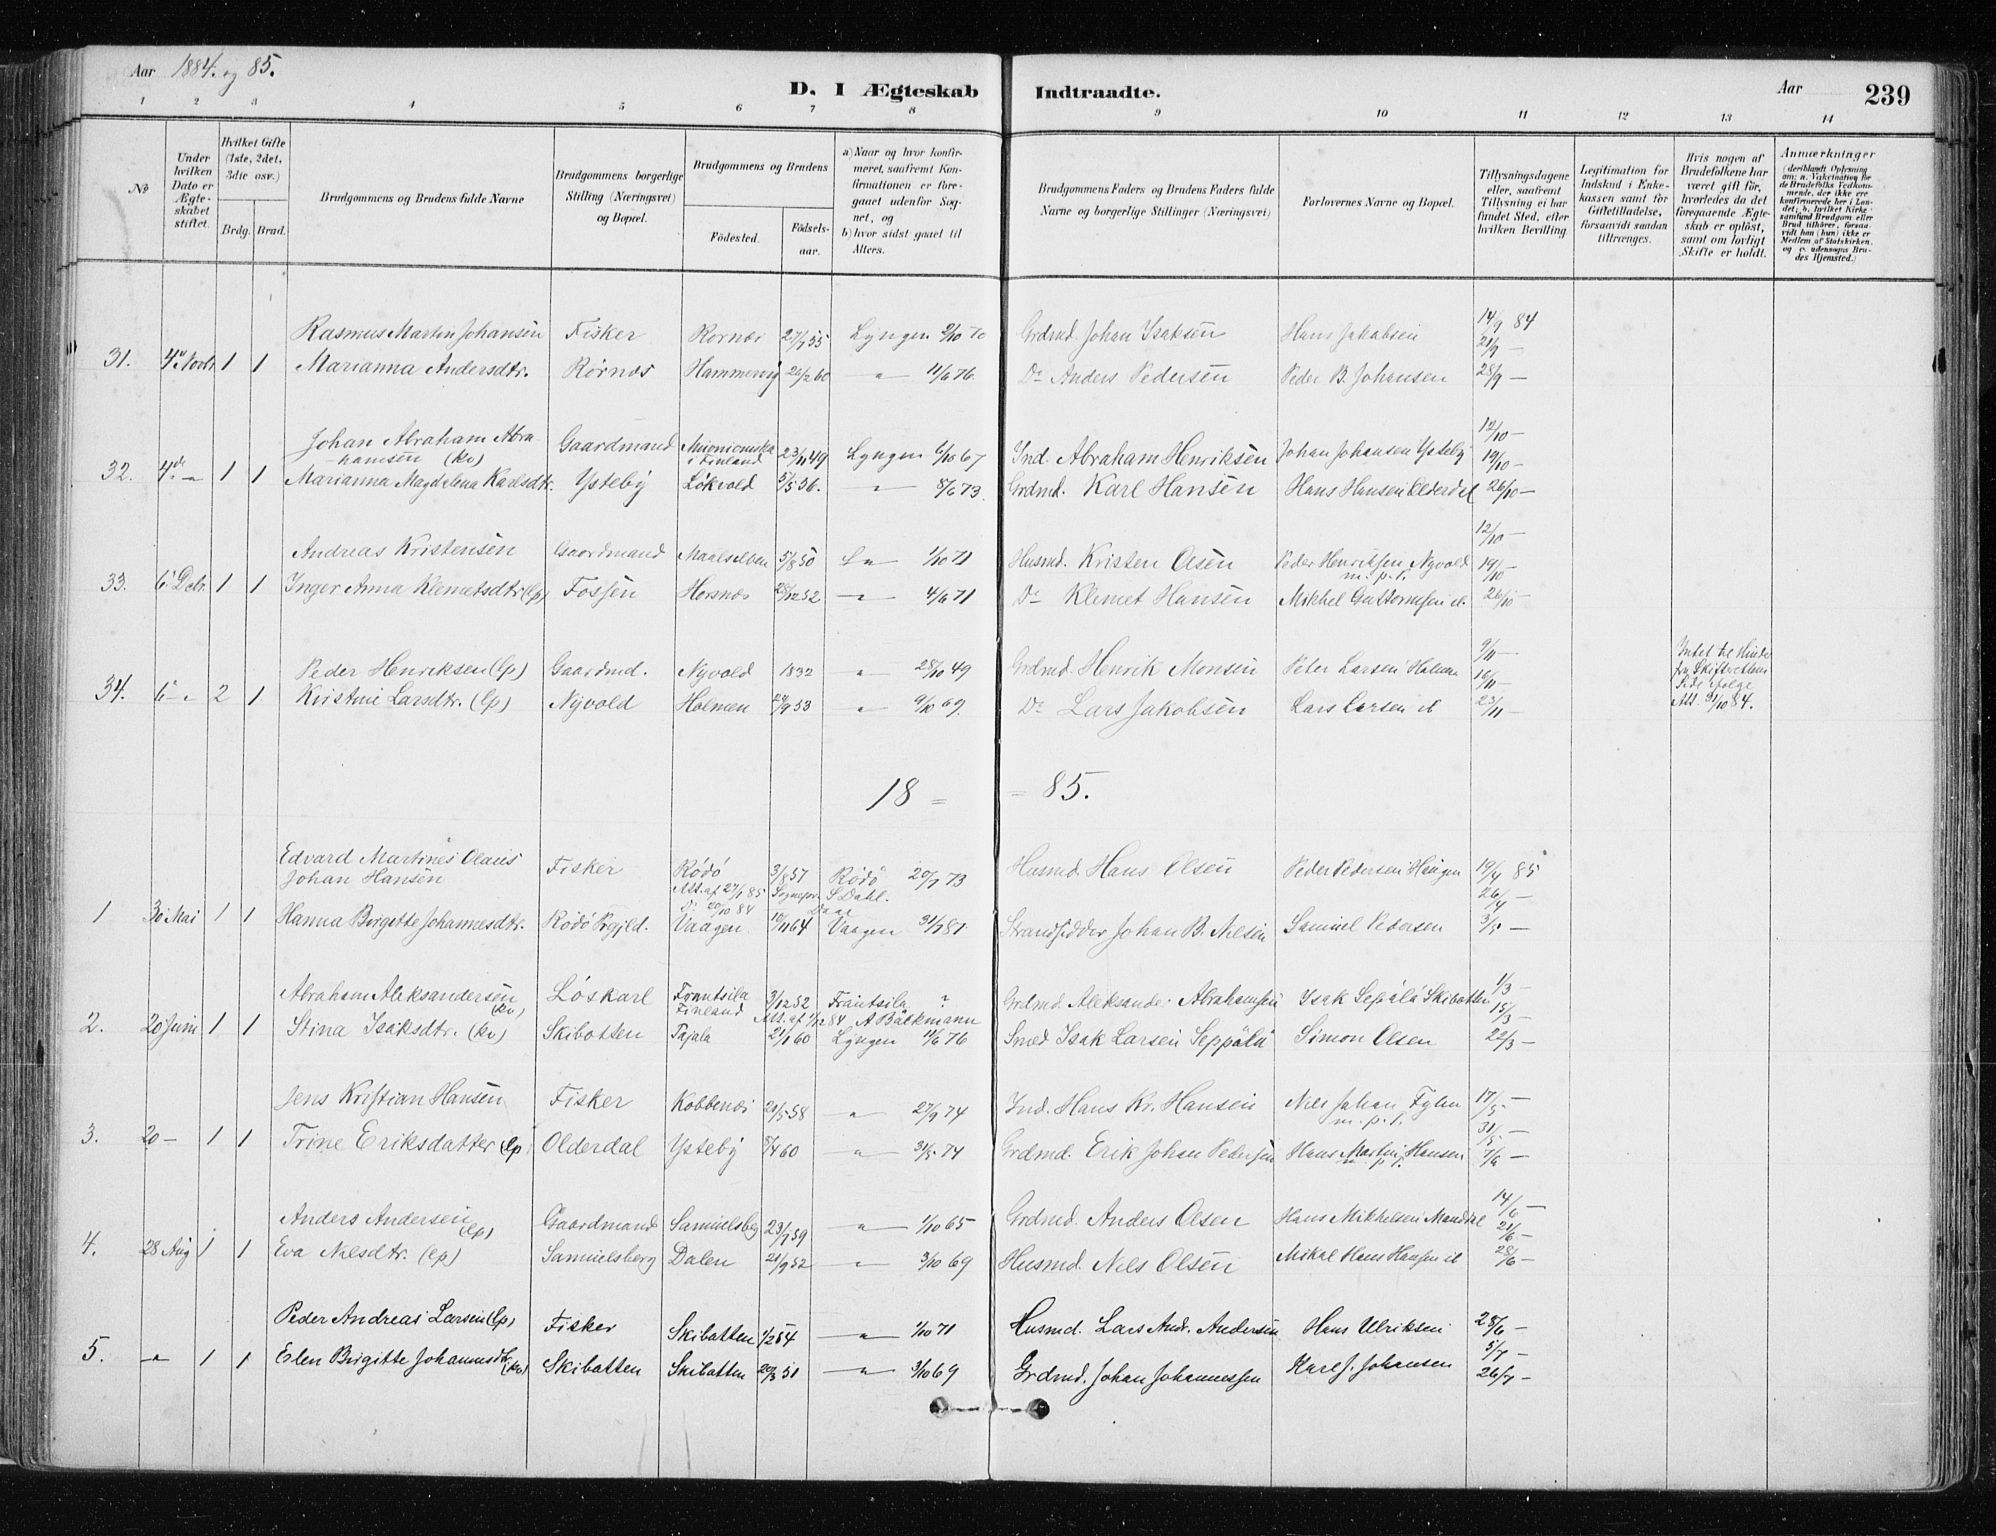 Aar 1884. og 85.
D. I Ægteskab Indtraadte.
Aar
239
1 2 3 4 5 6 7 8 9 10 11 12 13 14
No
Under hvilken Dato er Ægteskabet stiftet.
Hvilket Gifte (1ste, 2det, 3die osv.)
Brdg. Brud.
Brudgommens og Brudens fulde Navne
Brudgommens borgerlige Stilling (Næringsvei) og Bopæl.
Brudgommens og Brudens
Fødested. Fødsels-aar.
a) Naar og hvor konfirmeret, saafremt Konfirmationen er foregaaet udenfor Sognet, og
b) hvor sidst gaaet til Alters.
Brudgommens Faders og Brudens Faders fulde Navne og borgerlige Stillinger (Næringsvei)
Forlovernes Navne og Bopæl.
Tillysningsdagene eller, saafremt Tillysning ei har fundet Sted, efter hvilken Bevilling
Legitimation for Indskud i Enkekassen samt for Giftetilladelse, forsaavidt saadan tiltrænges.
Hvis nogen af Brudefolkene har været gift før, hvorledes da det foregaaende Ægteskab er opløst, samt om lovligt Skifte er holdt.
Anmærkninger
(deriblandt Oplysning om: a. Vakcination for de Brudefolks Vedkommende, der ikke ere konfirmerede her i Landet; b. hvilket Kirkesamfund Brudgom eller Brud tilhører, forsaavidt han (hun) ikke er Medlem af Statskirken, og c. udensogns Brudes Hjemsted.)
Rasmus Martin Johansen Fisker Rornæs 27/7 55 Lyngen 2/10 70 Grdmd. Johan Isaksen Hans Jakobsen 14/9 84
21/9 —
31. 4de Novbr 1 1 Marianna Andersdtr. Rørnæs Hammervig 26/2 60 " 11/6 76. Do Anders Pedersen Peder B. Johansen 28/9 —
12/10 —
Johan Abraham Abrahamsen (kv) Gaardmand Muonioniska i Finland 23/11 49 Lyngen 6/10 67 Ind. Abraham Henriksen Johan Johansen Ysteby 19/10 —
32. 4de " 1 1 Marianna Magdalena Karlsdtr. Ysteby Løkvold 5/5 56. " 8/6 73. Grdmd. Karl Hansen Hans Hansen Olderdal 26/10 —
12/10 —
Andreas Kristensen Gaardmand Maalselven 5/8 50 L " 1/10 71 Husmd. Kristen Olsen Peder Henriksen Nyvold 19/10 —
m. p. P.
33. 6 Dcbr. 1 1 Inger Anna Klemetsdtr (lp) Fossen Horsnæs 28/12 52 " 4/6 71 Do Klemet Hansen Mikkel Guttormsen il. 26/10 —
Peder Henriksen (lp) Gaardmd. Nyvold 1832 " 28/10 49 Grdmd. Henrik Monsen Peter Larsen Holmen 9/11 —
16/11 —
Intet til Hinder fra Skifterettens Side ifølge Att. 31/10 84.
34. 6 " 2 1 Kristine Larsdtr. (lp) Nyvold Holmen 24/9 53 " 9/10 69. Do Lars Jakobsen Lars Larsen il 23/11 —
18 = = 85.
Edvard Martines Olaus Johan Hansen Fisker Rødø 3/8 57 Rødø 20/7 73 Husmd. Hans Olsen Peder Pedersen Haugen 19/4 85
Att. af 27/1 85 Sognepr. S. Dahl. 26/4 —
Do 20/10 84 Daae
1 30 Mai 1 1 Hanna Birgitte Johannesdtr. Rødø Prgjld. Vaagen 10/11 64 Vaagen 31/7 81. Strandsidder Johan B. Nilsen Samuel Pedersen 3/5 —
Abraham Aleksandersen (kv) Løskarl Frantsila Finland 3/12 52 Frantsila ? Grdmd. Aleksander Abrahamsen Isak Sepälä Skibotten 1/3 —
Att. af 1/12 84 A Bäckmann 15/3 —
2. 20 Juni 1 1 Stina Isaksdtr. (kv) Skibotten Pajala 21/1 60 Lyngen 11/6 76 Smed Isak Larsen Seppälä Simon Olsen 22/3 —
Jens Kristian Hansen Fisker Kobbenæs 20/5 58 " 27/9 74 Ind. Hans Kr. Hansen Nils Johan Fyhn 17/5 —
m. p. P. 31/5 —
3. 20 — 1 1 Trine Eriksdatter (lp) Olderdal Ysteby 8/4 60 " 31/5 74 Grdmd. Erik Johan Pedersen Hans Martin Hansen 7/6 —
m. p. P.
Anders Andersen (lp) Gaardmand Samuelsbg 23/7 59 " 1/10 65 Grdmd. Anders Olsen Hans Mikkelsen Mandal 14/6 —
21/6 —
4. 28 Aug 1 1 Eva Nilsdtr. (lp) Samuelsberg Dalen 21/9 52 " 3/10 69 Husmd. Nils Olsen Mikal Hans Hansen il 28/6 —
Peder Andreas Larsen (lp) Fisker Skibotten 1/2 54 " 1/10 71 Husmd. Lars Andr. Andersen Hans Ulriksen 28/6 —
5/7 —
5. " 1 1 Elen Birgitte Johannesdtr. (kv) Skibotten Skibotten 20/3 51 " 3/10 69 Grdmd. Johan Johannessen Karl J. Johansen 26/7 —